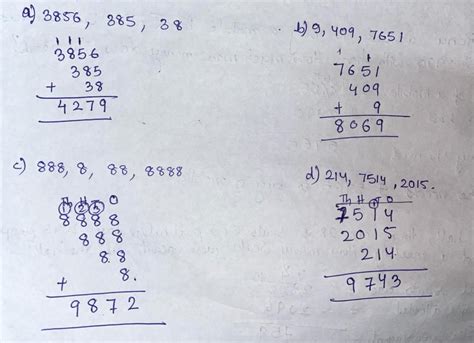 a) 3856, 385, 38
1 1 1
3856
385
+ 38
4279
b) 9, 409, 7651
1 1
7651
409
+ 9
8069
c) 888, 8, 88, 8888
Th H T O
1 2 3
8888
888
88
+ 8.
9872
d) 214, 7514, 2015.
Th H T O
1
7514
2015
214
9743